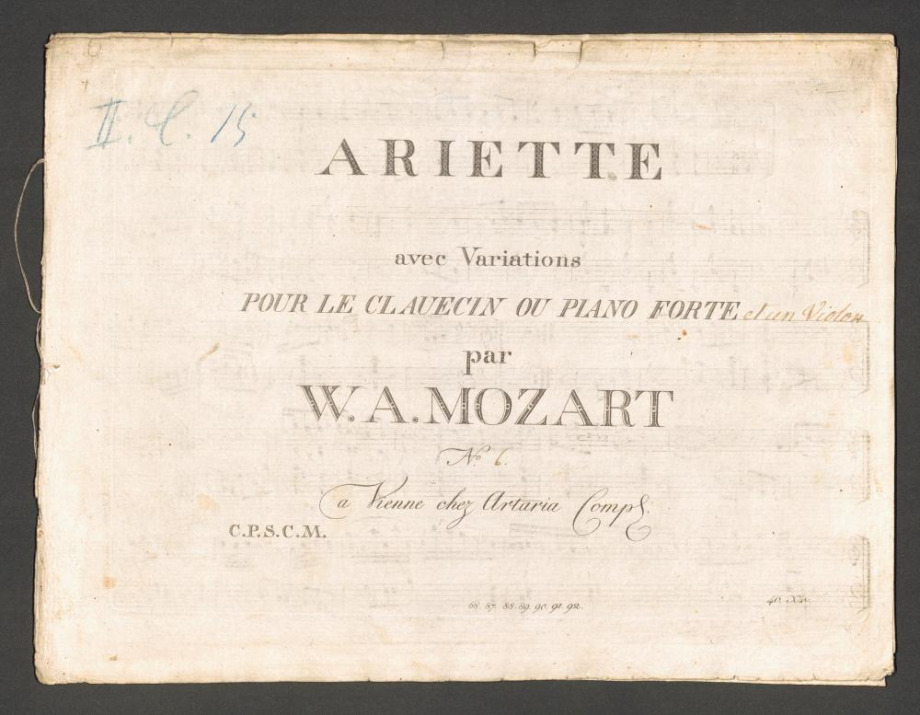 II. C. 15
ARIETTE
avec Variations
POUR LE CLAVECIN OU PIANO FORTE et un Violon
par
W. A. MOZART
No. 6.
a Vienne chez Artaria Comp.
C.P.S.C.M.
87. 88. 89. 90. 91. 92.